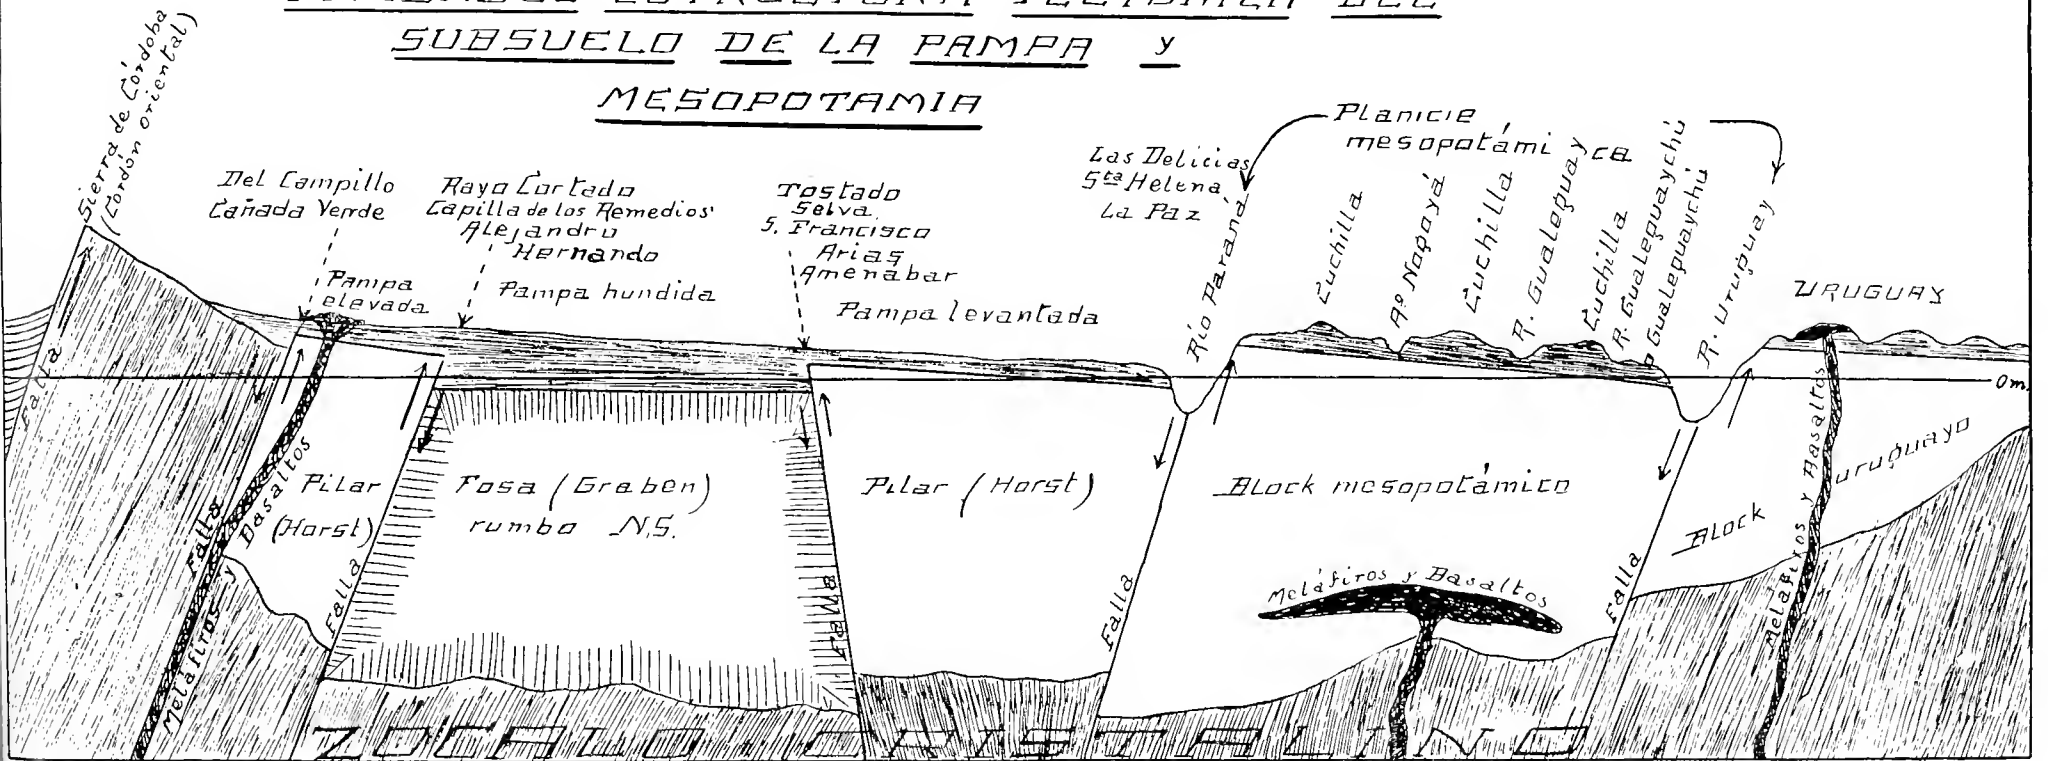 ESTRUCTURA TECTONICA DEL
SUBSUELO DE LA PAMPA y
MESOPOTAMIA
Sierra de Córdoba
(Cordón oriental)
Del Campillo
Cañada Verde
Rayo Cortado
Capilla de los Remedios
Alejandro
Hernando
Tostado
Selva
S. Francisco
Arias
Amenábar
Las Delicias
Sta Helena
La Paz
Planicie
mesopotámica
Río Paraná
Cuchilla
Aº Nogoyá
Cuchilla
R. Gualeguay
Cuchilla
R. Gualeguaychú
Gualeguaychú
R. Uruguay
URUGUAY
Pampa
elevada
Pampa hundida
Pampa levantada
0 m.
Falla
Falla
Meláfiros y Basaltos
Pilar
(Horst)
Falla
Fosa (Graben)
rumbo N.S.
Falla
Pilar (Horst)
Falla
Block mesopotámico
Meláfiros y Basaltos
Falla
Block uruguayo
Meláfiros y Basaltos
ZOCALO CRISTALINO